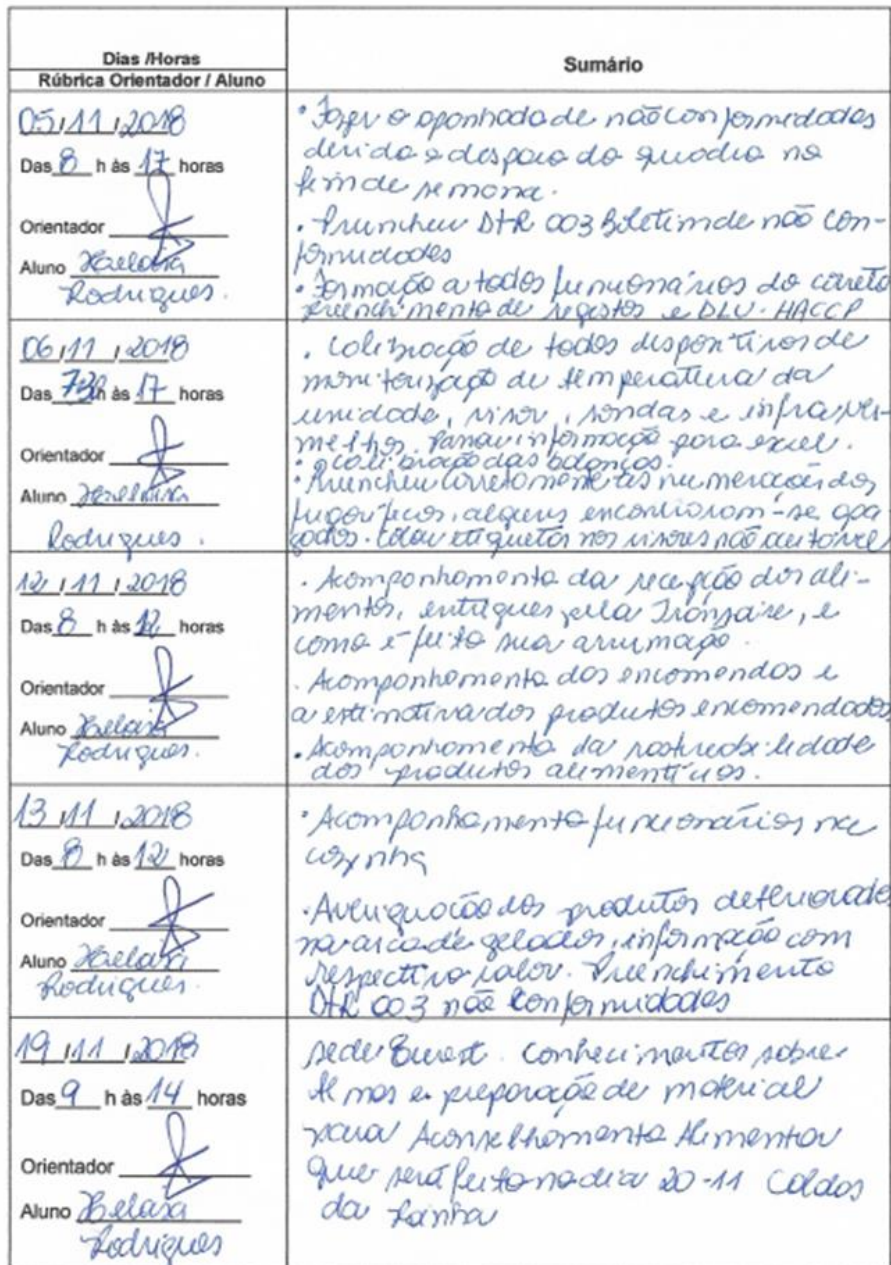 Dias /Horas
Rúbrica Orientador / Aluno
Sumário
05/11/2018
Das 8 h às 17 horas
Orientador
Aluno Heloisa
Rodrigues.
• Fazer o apanhado de não conformidades
devido a disparo do quadro no
fim de semana.
• Preencher DTR 003 Boletim de não con-
formidades
• Formação a todos funcionários do correto
preenchimento de registos e DLV. HACCP
06/11/2018
Das 7:30 h às 17 horas
Orientador
Aluno Heloisa
Rodrigues.
. Calibração de todos dispositivos de
monitorização de temperatura da
unidade, visor, sondas e infraver-
melhos. Passar informação para excel.
• calibração das balanças.
• Preencher corretamente as numerações dos
frigoríficos, alguns encontravam-se apa
gados. Colar etiquetas nos visores não
12/11/2018
Das 8 h às 12 horas
Orientador
Aluno Heloisa
Rodrigues.
. Acompanhamento da receção dos ali-
mentos, entregues pela, e
como é feita sua arrumação.
. Acompanhamento das encomendas e
a estimativa dos produtos encomendados
• Acompanhamento da rastreabilidade
dos produtos alimentícios.
13/11/2018
Das 8 h às 12 horas
Orientador
Aluno Heloisa
Rodrigues.
• Acompanhamento funcionários na
cozinha
• Averiguação dos produtos deteriorados
na arca de gelados, informação com
respectivo valor. Preenchimento
DTR 003 não conformidades
19/11/2018
Das 9 h às 14 horas
Orientador
Aluno Heloisa
Rodrigues
sede Eurest. Conhecimentos sobre
temas e preparação de material
para Aconselhamento Alimentar
que será feito no dia 20-11 Caldas
da Rainha